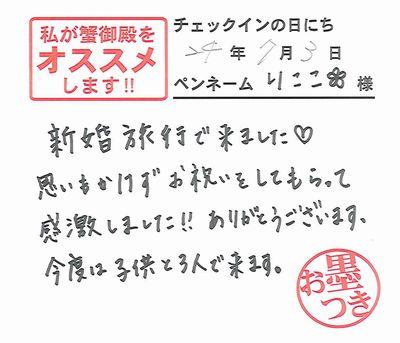 私が蟹御殿を
オススメ
します!!
チェックインの日にち
24年7月3日
ペンネーム りここ 様
新婚旅行で来ました♡
思いもかけずお祝いをしてもらって
感激しました!!ありがとうございます。
今度は子供と3人で来ます。
お墨つき